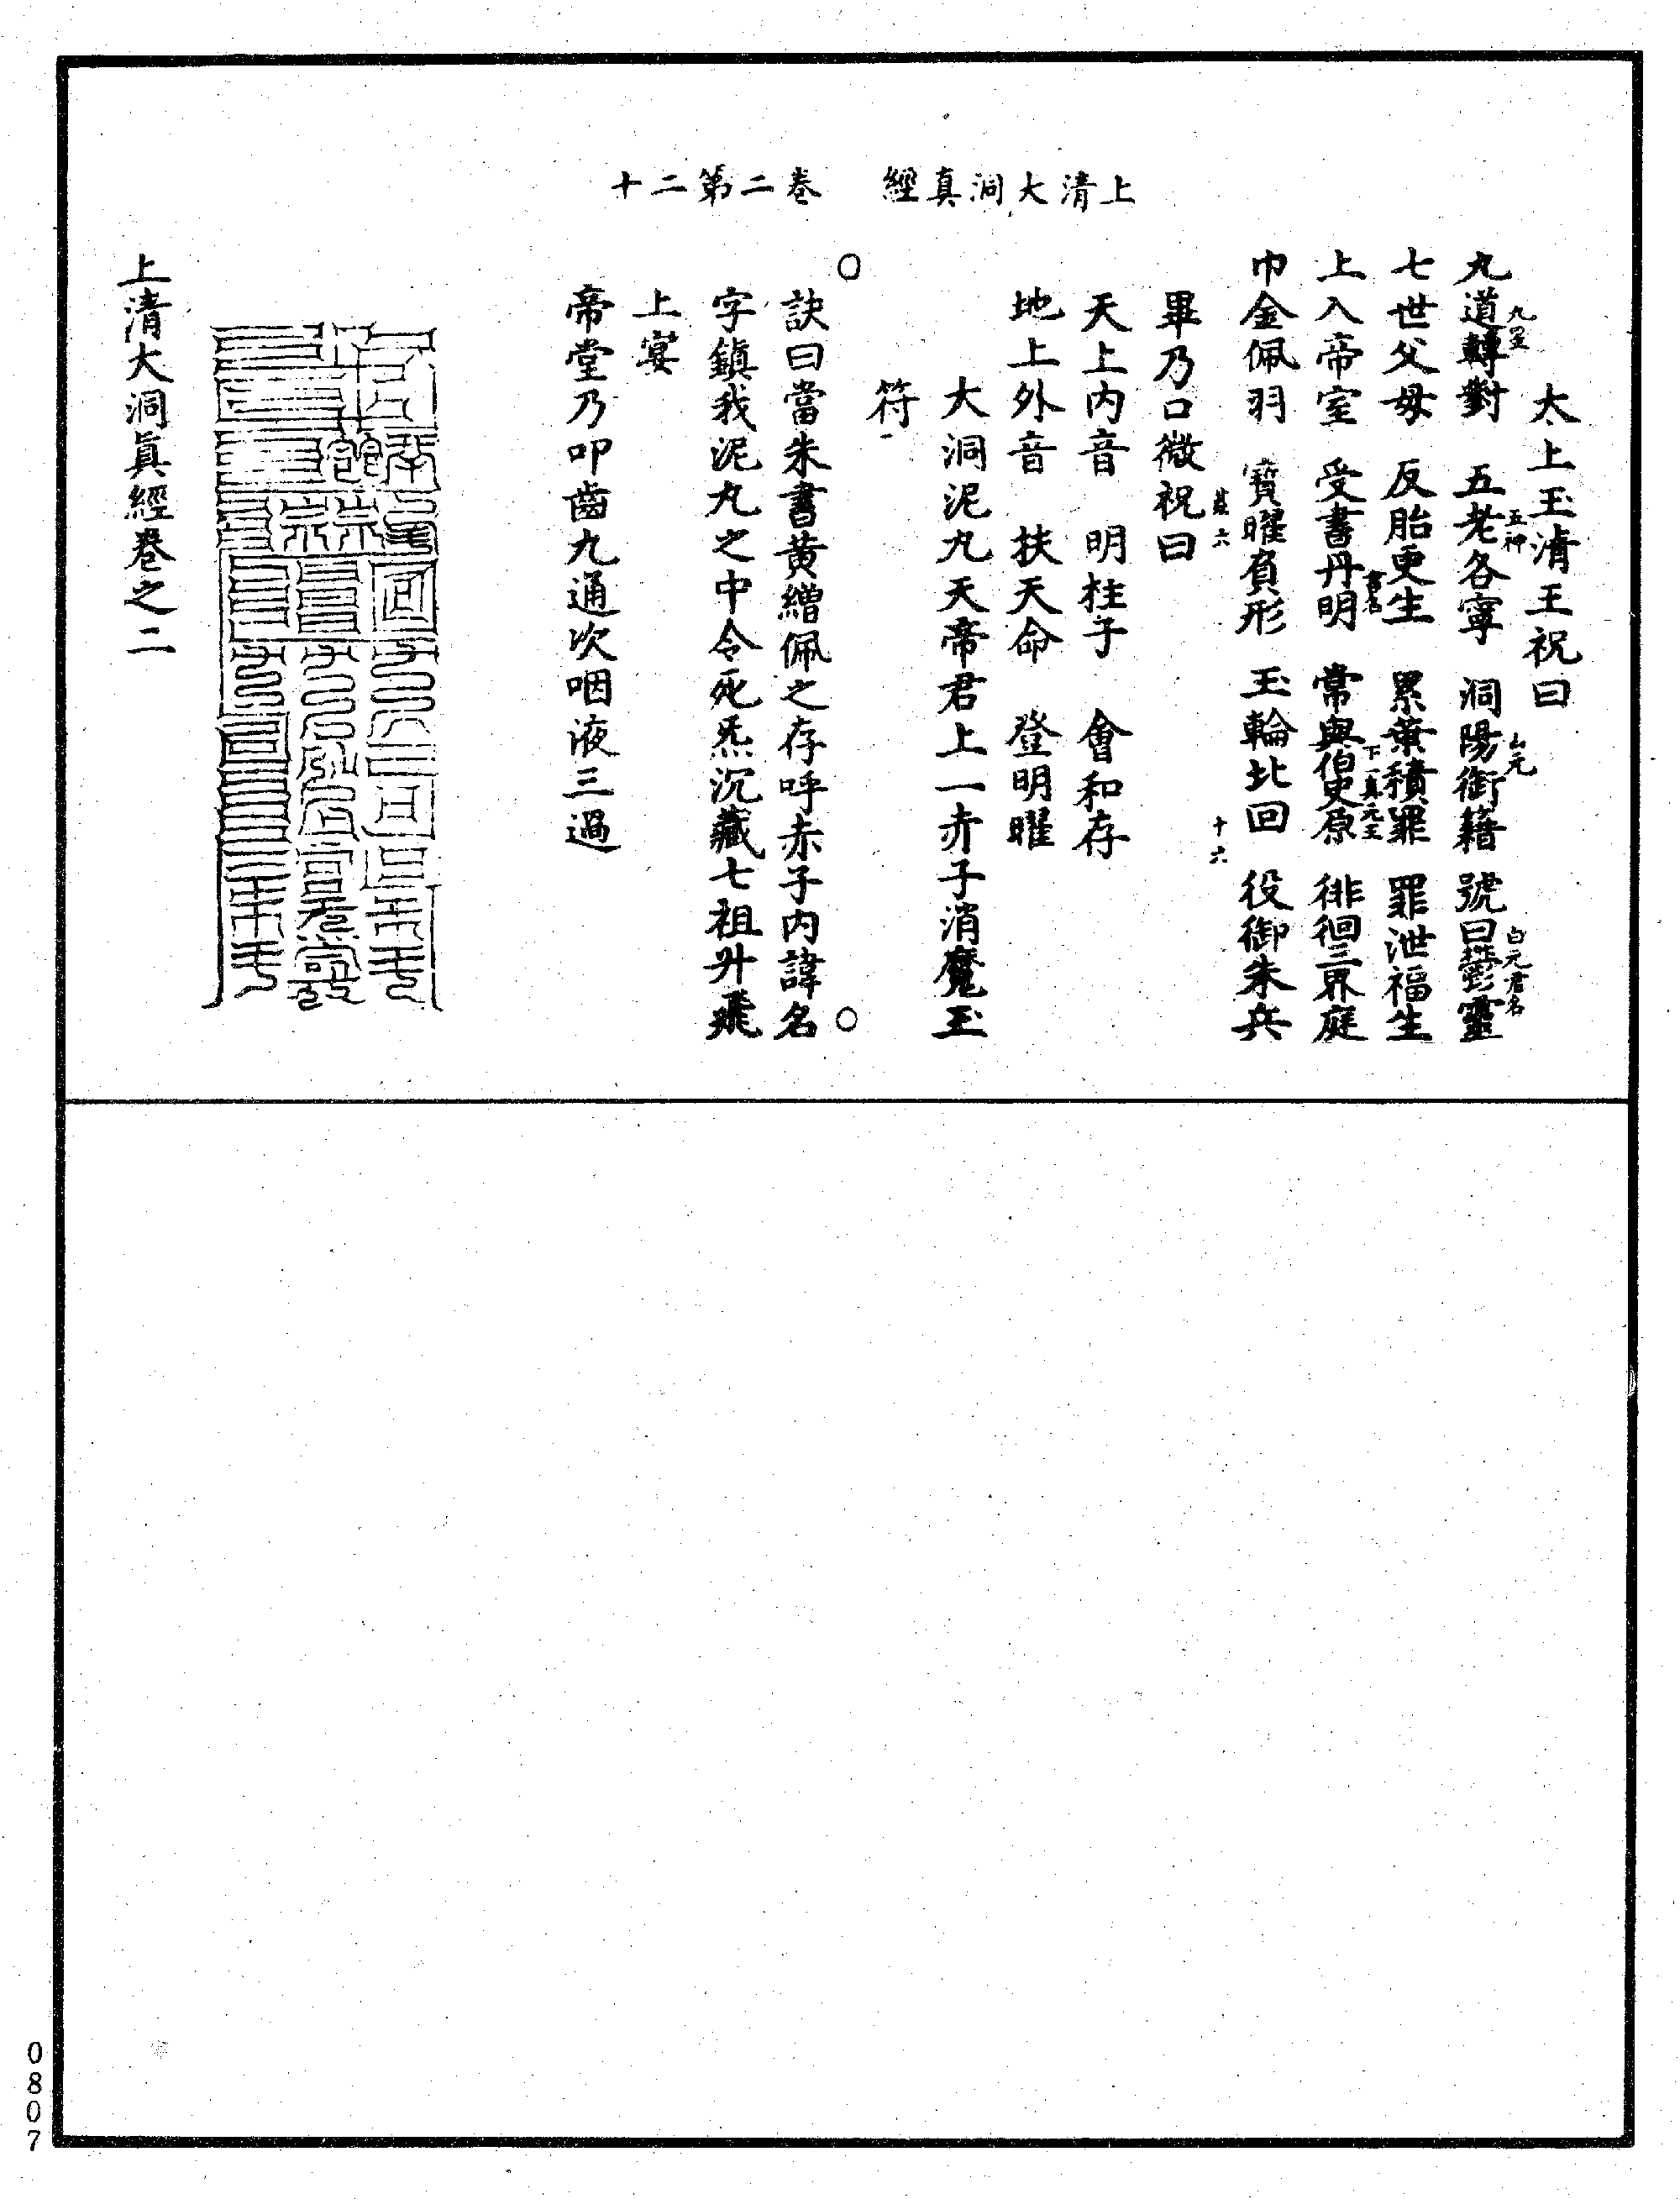 上清大洞真經　卷二第二十
太上玉清王祝曰
九道轉對　五老各寧　洞陽銜籍　號曰鬱靈
五神
白元君名
七世父母　反胎更生　累葉積罪　罪泄福生
上入帝室　受書丹明　常與伯史原　徘徊三界庭
下一真元王
巾金佩羽　寶曜負形　玉輪北回　役御朱兵
十六
畢乃口微祝曰
天上內音　明柱子　會和存
地上外音　扶天命　登明曜
大洞泥丸天帝君上一赤子消魔玉
符
訣曰當朱書黃繒佩之存呼赤子內諱名
字鎮我泥丸之中令死炁沉藏七祖升飛
上宴
帝堂乃叩齒九通次咽液三過
上清大洞真經卷之二
0807